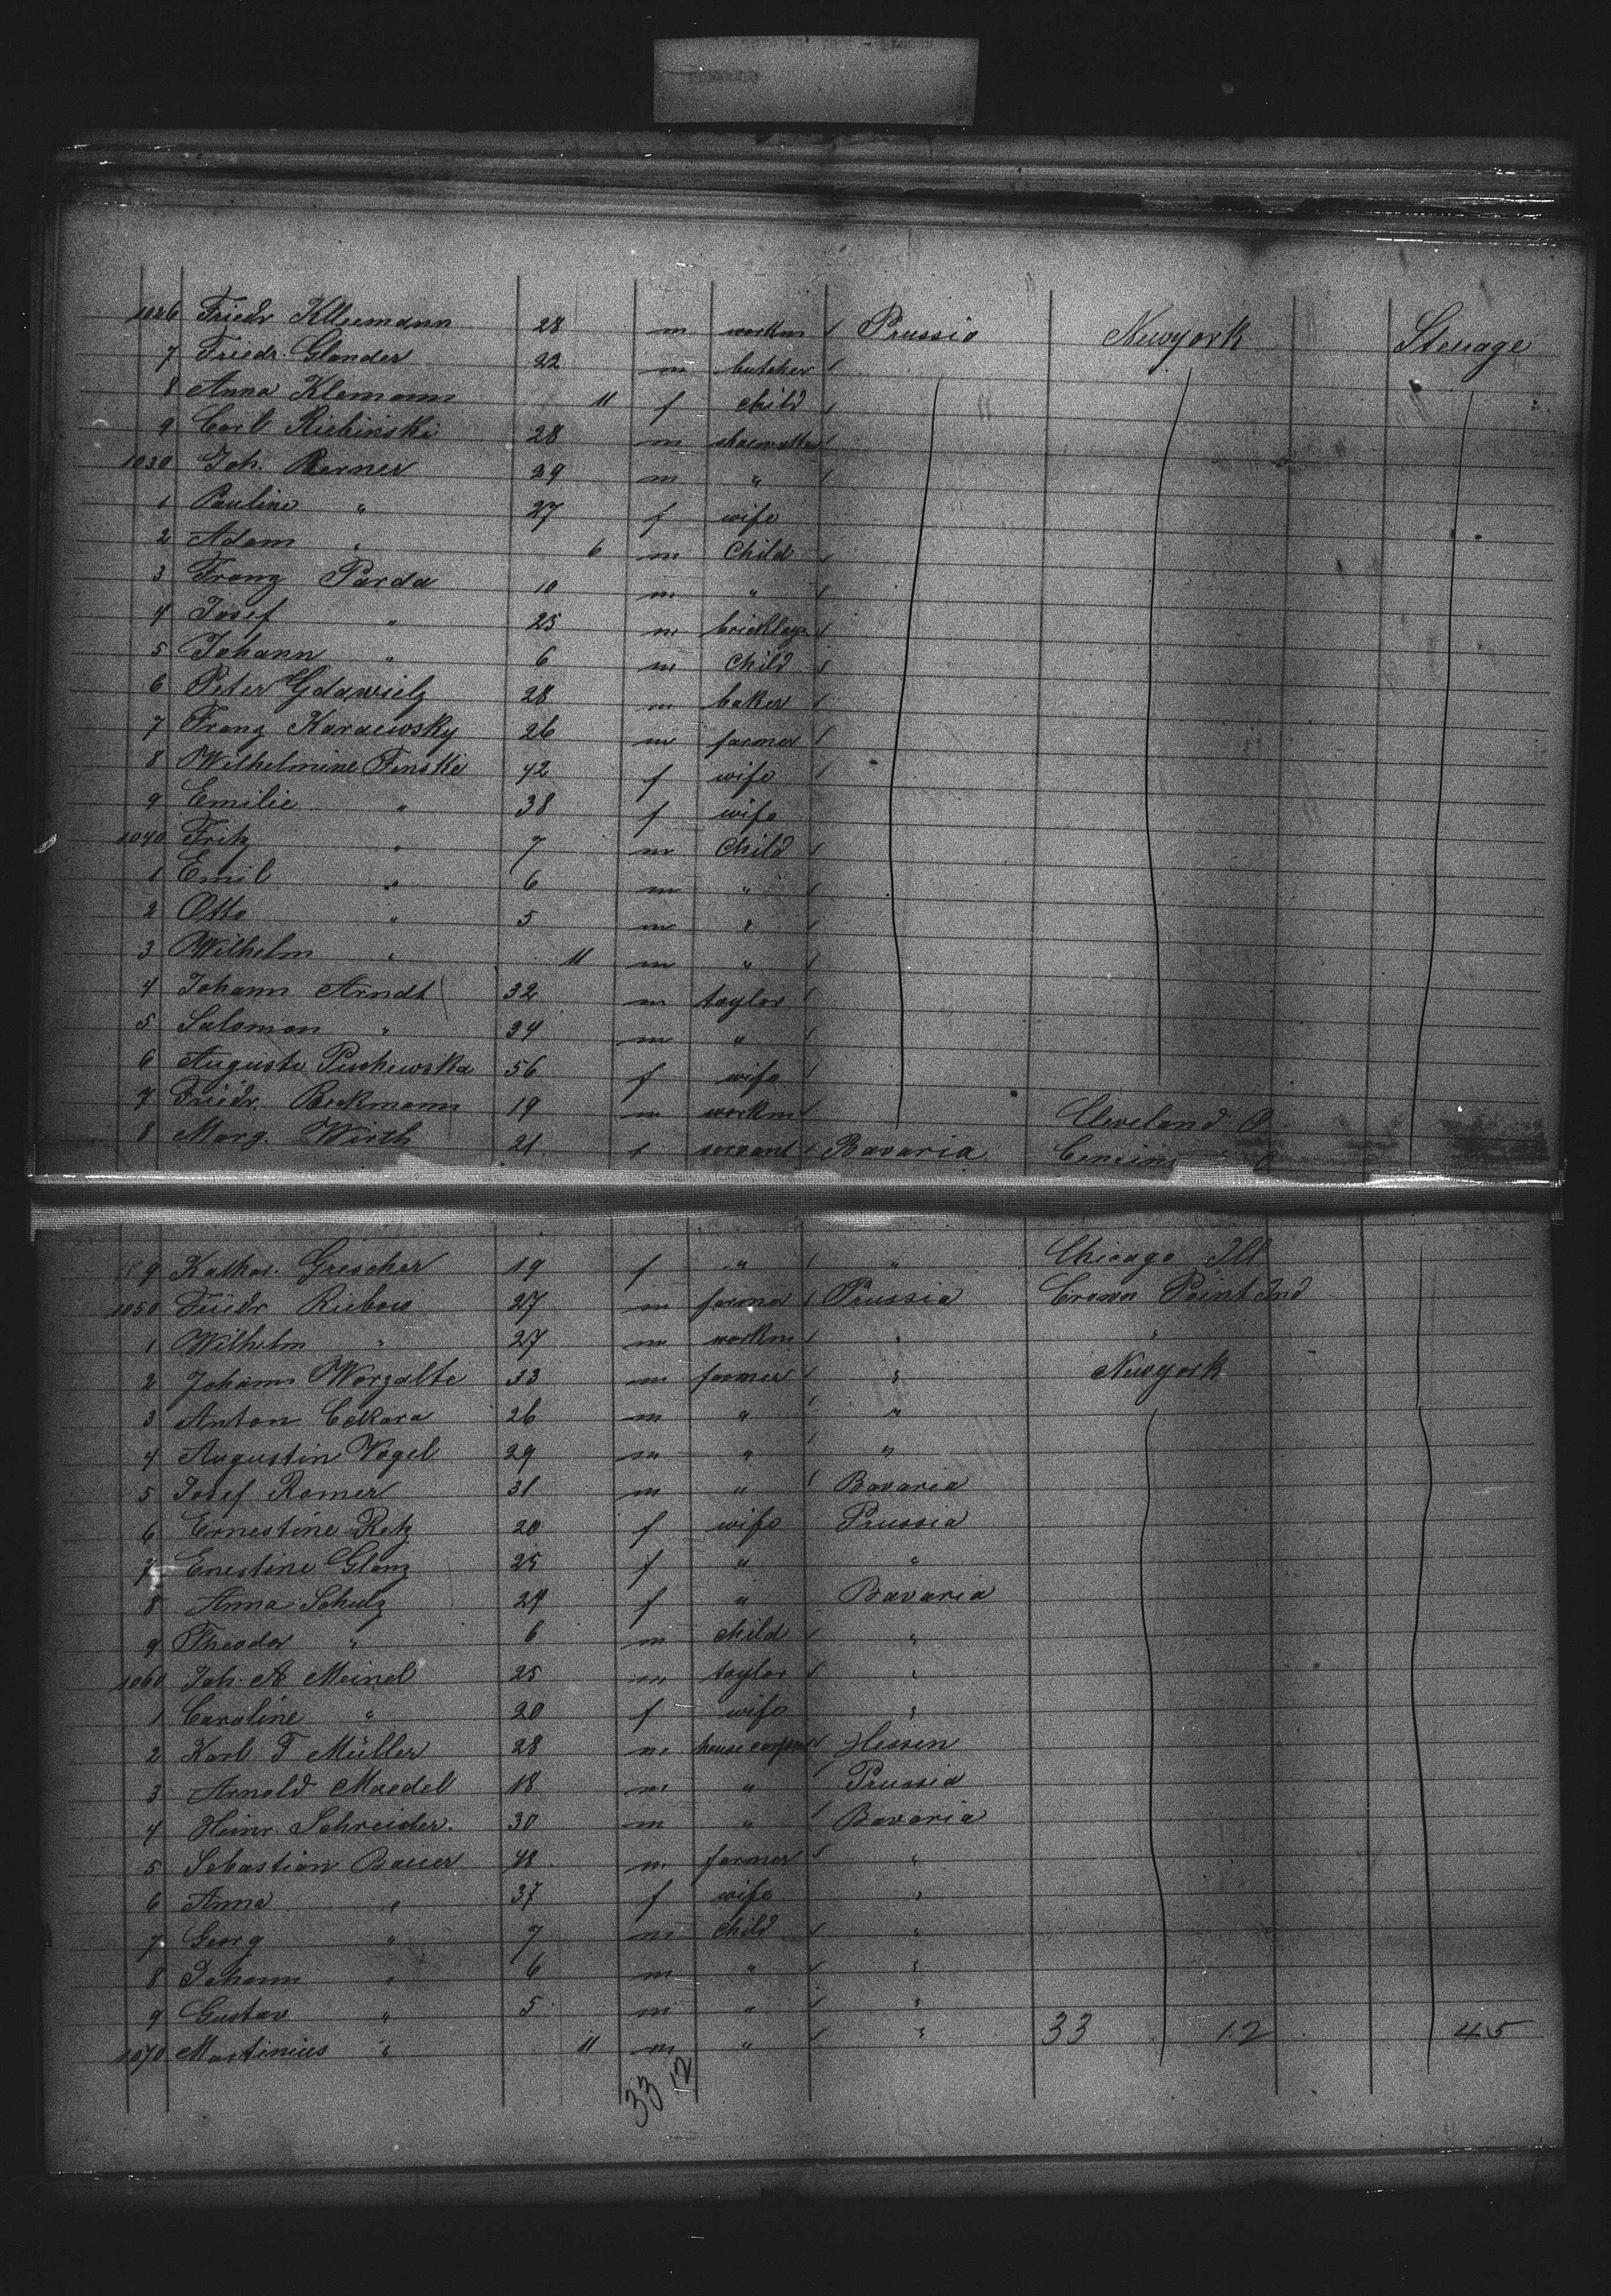 1026 Friedr Kleemann 28 m workm Prussia Newyork Steuage
7 Friedr. Glander 22 m butcher
8 Anna Klemann 11 f child
9 Carl Riebinski 28 m shoemaker
1030 Joh. Berner 29 m "
1 Pauline " 27 f wife
2 Adam " 6 m Child
3 Franz Parda 10 m "
4 Josef " 25 m bricklayer
5 Johann " 6 m Child
6 Peter 28 m baker
7 Franz Karaewsky 26 m farmer
8 Wilhelmine Fenske 42 f wife
9 Emilie " 38 f wife
1040 Fritz " 7 m Child
1 Emil " 6 m "
2 Otto " 5 m "
3 Wilhelm " 11 m "
4 Johann Arndt 32 m taylor
5 Salomon " 34 m "
6 Auguste Puchewska 56 f wife
7 Friedr. Beckmann 19 m workm Cleveland O
8 Marg. Wirth 21 f servant Bavaria O
9 Kathar. Grescher 19 f " " Chicago Ill
1050 Friedr Riebow 27 m farmer Prussia Crown Point Ind
1 Wilhelm " 27 m workm " "
2 Johann Worzalte 33 m farmer " Newyork
3 Anton Cekara 26 m " "
4 Augustin Vogel 29 m " "
5 Josef Romer 31 m " Bavaria
6 Ernestine Retz 20 f wife Prussia
7 Enestine Glanz 25 f " "
8 Anna Schulz 24 f " Bavaria
9 Theodor " 6 m child "
1060 Joh. A Meinel 25 m taylor "
1 Caroline " 20 f wife "
2 Karl F Müller 28 m house carpent Hessen
3 Arnold Maedel 18 m " Prussia
4 Heinr. Schreider. 30 m " Bavaria
5 Sebastian Bauer 48 m farmer "
6 Anna " 37 f wife "
7 Georg " 7 m child "
8 Johann " 6 m " "
9 Gustav " 5 m " "
1070 Martinius " 11 m " " 33 12 45
33 12